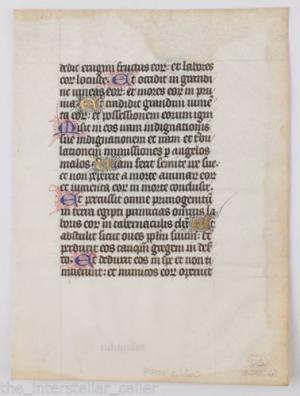 dedit erugini fructus eor: et labores
eor locuste. Et occidit in grandi
ne vineas eor: et moros eor in prui
na. Et tradidit grandini iume
ta eor: et possessionem eorum igni
Misit in eos iram indignationis
sue indignationem et iram et tri
bulationem inmissiones p angelos
malos. Viam fecit semite ire sue
et non pepercit a morte animar eor
et iumenta eor in morte conclusit.
Et percussit omne primogenitū
in terra egypti primicias omnis la
boris eor in tabernaculis chā. Et
abstulit sicut oves pplm suum: et
perduxit eos tamqm gregem in deser
to. Et deduxit eos in spe et non ti
muerunt: et inimicos eor operuit
the_interstellar_seller